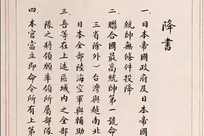 降書
一、日本帝國政府及日本帝國
統帥無條件投降
二、聯合國最高統帥第一號命
三省除外)台灣與越南北
日本全部陸海空軍與輔助
三、吾等在上述區域內之全部
隊之將領願率領所屬部隊
四、本官當立即命令所有上第